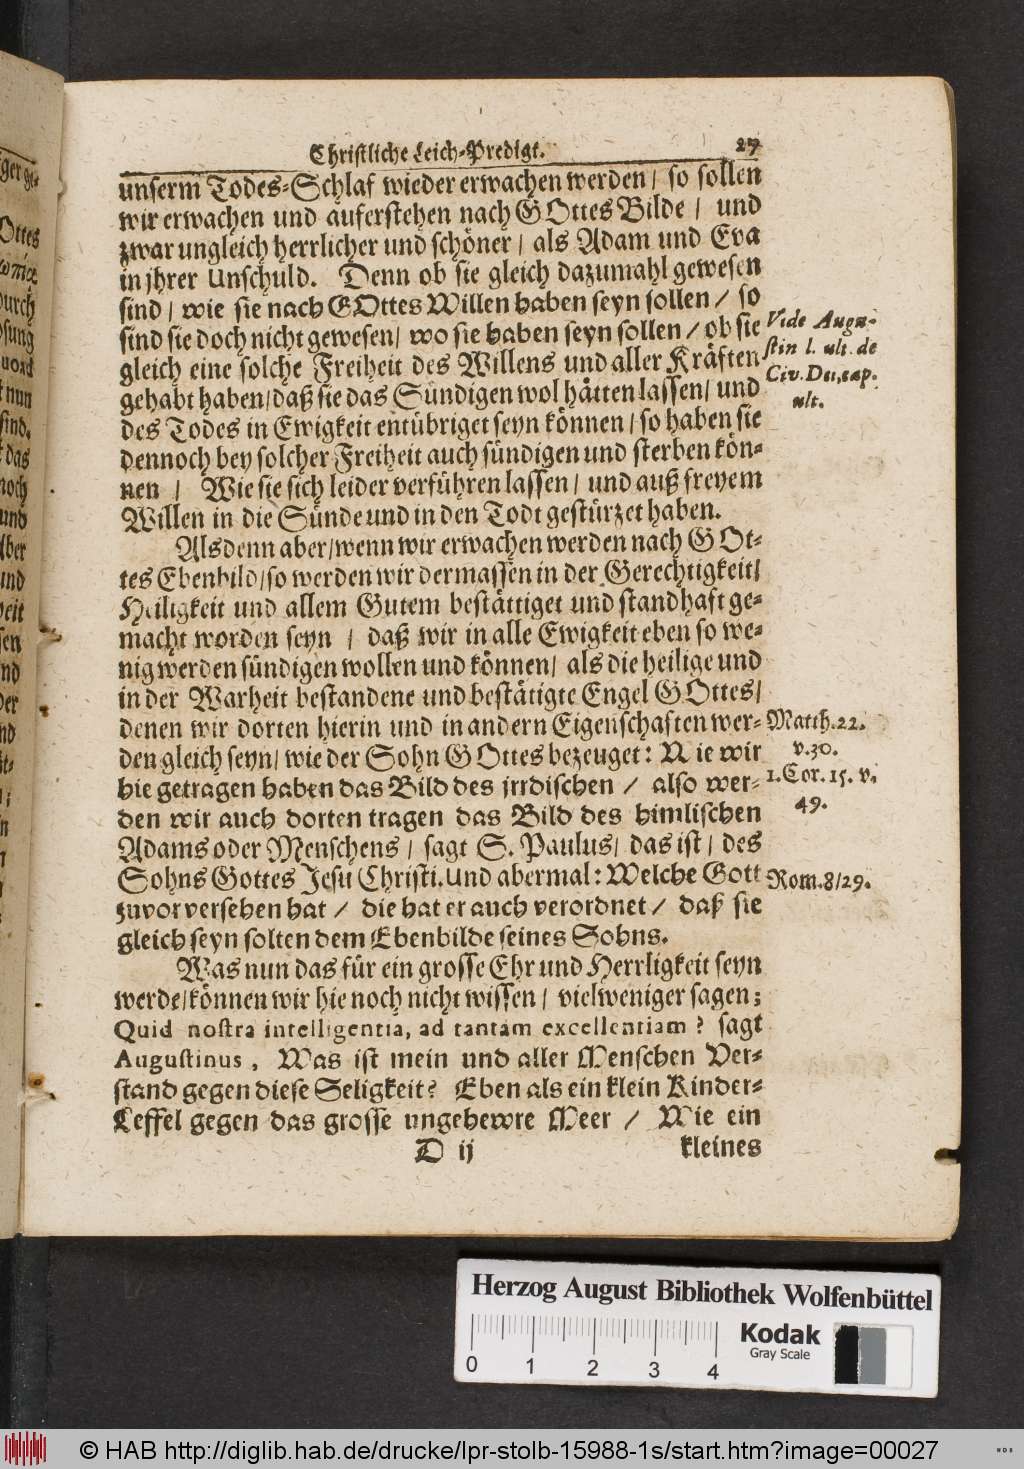 Christliche Leich-Predigt. 27
unserm Todes-Schlaf wieder erwachen werden / so sollen
wir erwachen und auferstehen nach GOttes Bilde / und
zwar ungleich herrlicher und schöner / als Adam und Eva
in jhrer Unschuld. Denn ob sie gleich dazumahl gewesen
sind / wie sie nach GOttes Willen haben seyn sollen / so
sind sie doch nicht gewesen / wo sie haben seyn sollen / ob sie
gleich eine solche Freiheit des Willens und aller Kräften
gehabt haben / daß sie das Sündigen wol hätten lassen / und
des Todes in Ewigkeit entübriget seyn können / so haben sie
dennoch bey solcher Freiheit auch sündigen und sterben kön-
nen / Wie sie sich leider verführen lassen / und auß freyem
Willen in die Sünde und in den Todt gestürzet haben.
Vide Augu-
stin l. ult. de
Civ. Dei, cap.
ult.
Alsdenn aber / wenn wir erwachen werden nach GOt-
tes Ebenbild / so werden wir dermassen in der Gerechtigkeit /
Heiligkeit und allem Gutem bestättiget und standhaft ge-
macht worden seyn / daß wir in alle Ewigkeit eben so we-
nig werden sündigen wollen und können / als die heilige und
in der Warheit bestandene und bestätigte Engel GOttes /
denen wir dorten hierin und in andern Eigenschaften wer-
den gleich seyn / wie der Sohn GOttes bezeuget: Wie wir
hie getragen haben das Bild des jrrdischen / also wer-
den wir auch dorten tragen das Bild des himlischen
Adams oder Menschens / sagt S. Paulus / das ist / des
Sohns Gottes Jesu Christi. Und abermal: Welche Gott
zuvor versehen hat / die hat er auch verordnet / daß sie
gleich seyn solten dem Ebenbilde seines Sohns.
Matth. 22.
v. 30.
1. Cor. 15. v.
49.
Rom. 8 / 29.
Was nun das für ein grosse Ehr und Herrligkeit seyn
werde / können wir hie noch nicht wissen / vielweniger sagen;
Quid nostra intelligentia, ad tantam excellentiam? sagt
Augustinus, Was ist mein und aller Menschen Ver-
stand gegen diese Seligkeit? Eben als ein klein Kinder-
Leffel gegen das grosse ungehewre Meer / Wie ein
D ij kleines
Herzog August Bibliothek Wolfenbüttel
0 1 2 3 4
Kodak
Gray Scale
© HAB http://diglib.hab.de/drucke/lpr-stolb-15988-1s/start.htm?image=00027